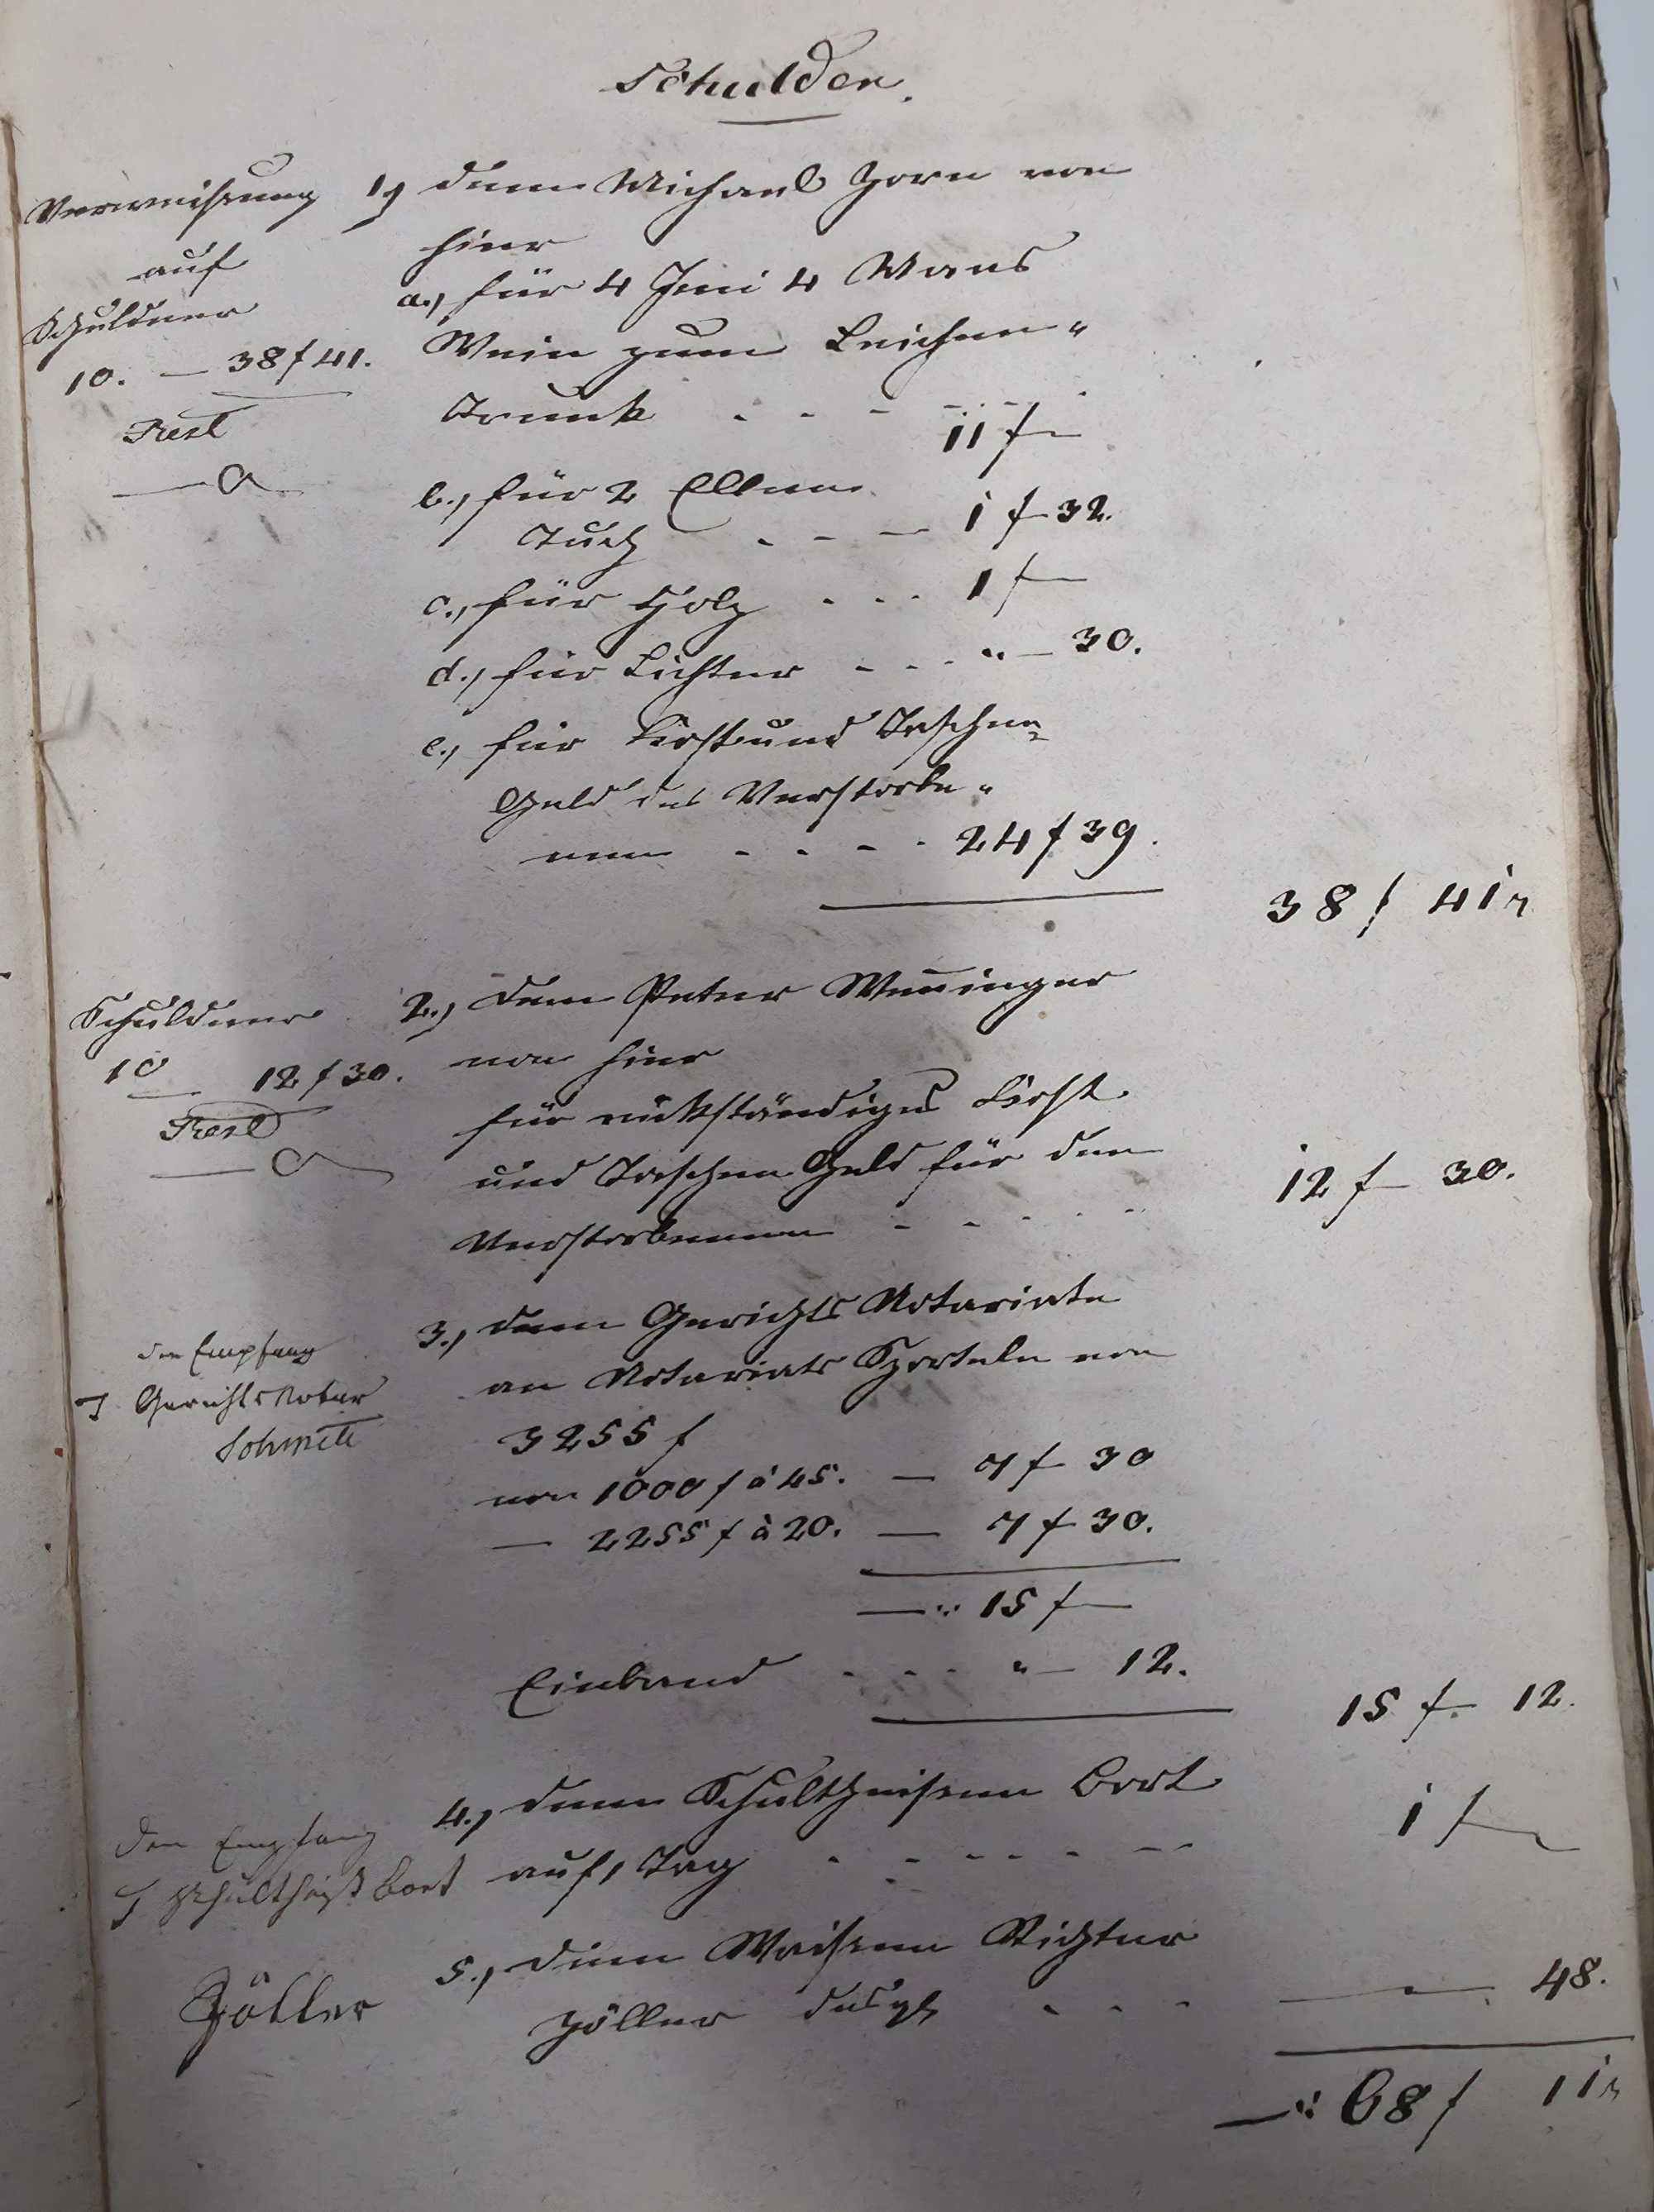 Schulden.
Verweisung
auf
Schuldner
10. — 38 f 41.
Rest
— 0
1.) dem Michael Zorn von
hier
a.) für 4 Imi 4 Maas
Wein zum Leichen"
Trunk . . - - - 11 f —
b.) für 2 Ellen
Tuch . - — 1 f 32.
c.) für Holz . . . 1 f —
d.) für Lichter - - . " — 30.
e.) für Kost und Taschen
Geld des Verstorbe"
nen . . . - . 24 f 39.
38 f 41 x
Schuldner
10 — 12 f 30.
Rest
— 0
2.) dem Peter Wenninger
von hier
für rükständiges Kost
und Taschen Geld für den
Verstorbenen - - . . . 12 f — 30.
den Empfang
T. Gerichts Notar
3.) dem Gerichts Notariate
an Notariats Sporteln von
3255 f
von 1000 f à 45. — 7 f 30
— 2255 f à 20. — 7 f 30.
—: 15 f —
Einband . . . " — 12.
15 f. 12.
den Empfang
T Schultheiß Bort
4.) dem Schultheisen Bort
auf 1 Tag . - - - - — 1 f —
Zöller
5.) dem Waisen Richter
Zöller desgl. . . . — 48.
—: 68 f 11 x